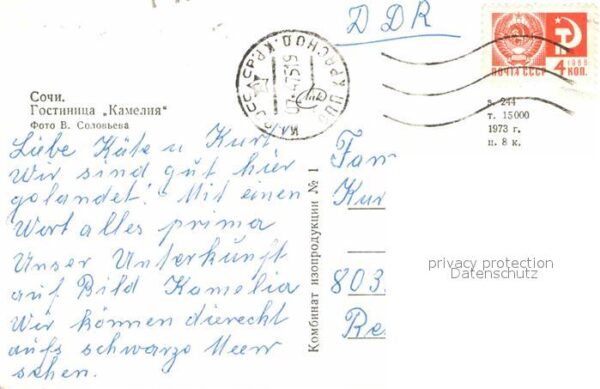 DDR
1966
ПОЧТА СССР 4 КОП.
Сочи.
Гостиница „Камелия“
Фото В. Соловьева
з. 244
т. 15000
1973 г.
ц. 8 к.
Liebe Käte u Kurt
Wir sind gut hier
gelandet! Mit einen
Wort alles prima
Unser Unterkunft
auf Bild Kamelia
Wir können diereckt
aufs schwarze Meer
sehen.
Комбинат изопродукции № 1
Fam
Kur
803
Re
privacy protection
Datenschutz